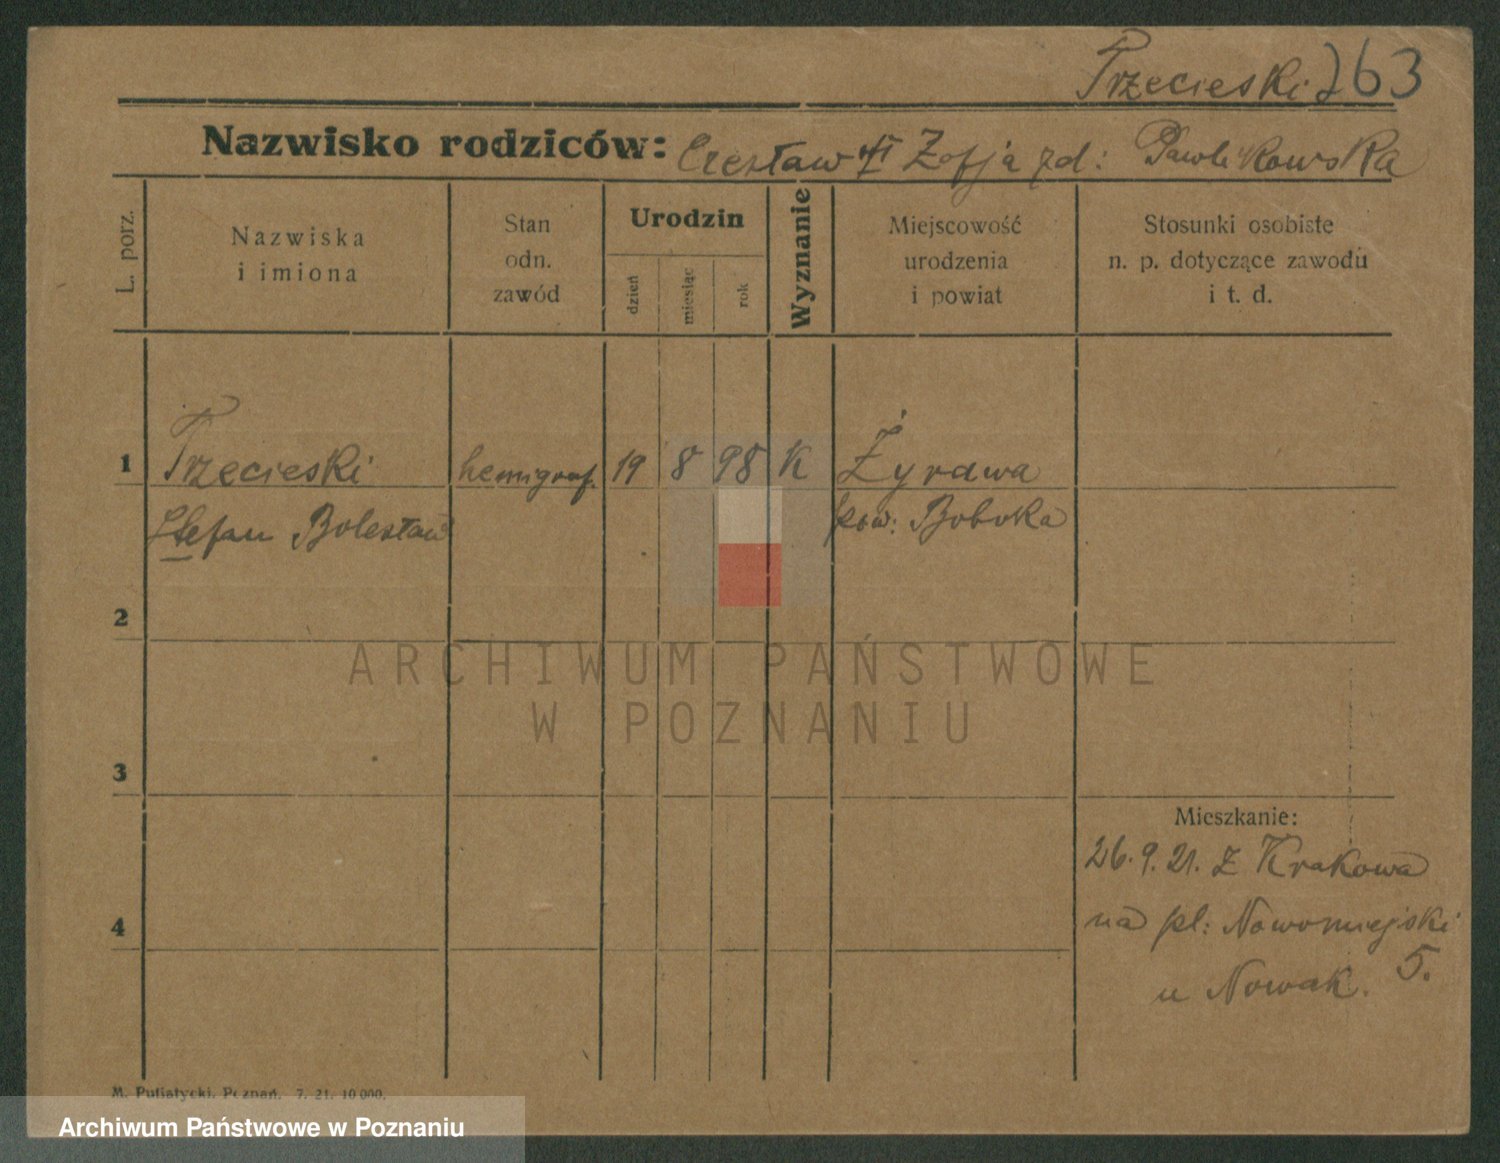 Trzecieski 263
Nazwisko rodziców: Czesław i Zofja zd: Pawlikowska
L. porz.
Nazwiska
i imiona
Stan
odn.
zawód
Urodzin
dzień
miesiąc
rok
Wyznanie
Miejscowość
urodzenia
i powiat
Stosunki osobiste
n. p. dotyczące zawodu
i t. d.
1 Trzecieski hemigraf. 19 8 98 K Żyrawa
Stefan Bolesław pow: Bobrka
2
3
4
Mieszkanie:
26.9.21. z Krakowa
na pl: Nowomiejski
5.
u Nowak.
M. Putiatycki, Poznań. 7. 21. 10 000.
ARCHIWUM PAŃSTWOWE
W POZNANIU
Archiwum Państwowe w Poznaniu